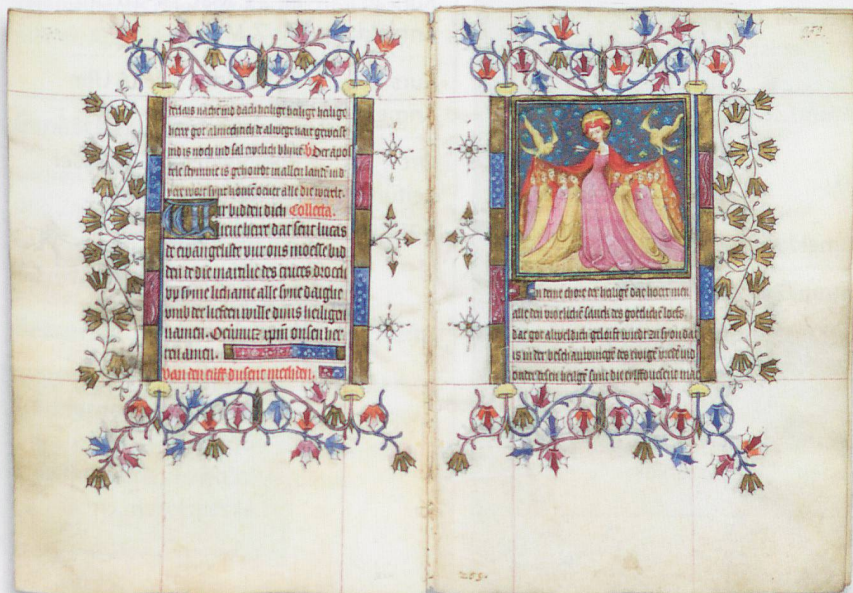 nacht ind dach heilige heilige heilige
herre got almechtich de alwege hait geweist
ind is noch ind sal ewelich bliven Der apos
tele stymme is gehoirt in allen landen ind
yere wort synt komen over alle die werelt.
Wir bidden dich Collecta.
lieve herre dat sent lucas
de ewangeliste vur ons moesse bid
den de die martilie des cruces droech
an syme lichame alle syne daighe
umb der liefden wille dinis heiligen
namen. onsen her
ren amen.
Van den eilff dusent mechden.
252.
In deme chore der heiligen dae hoert men
alle den vroelichen sanck des gotlichen lofs
dat got alweldich gelovet wirt zo syon dat
is in der beschauwungen des ewigen vreden ind
onder desen heiligen sint die eylffduesent mae
253.